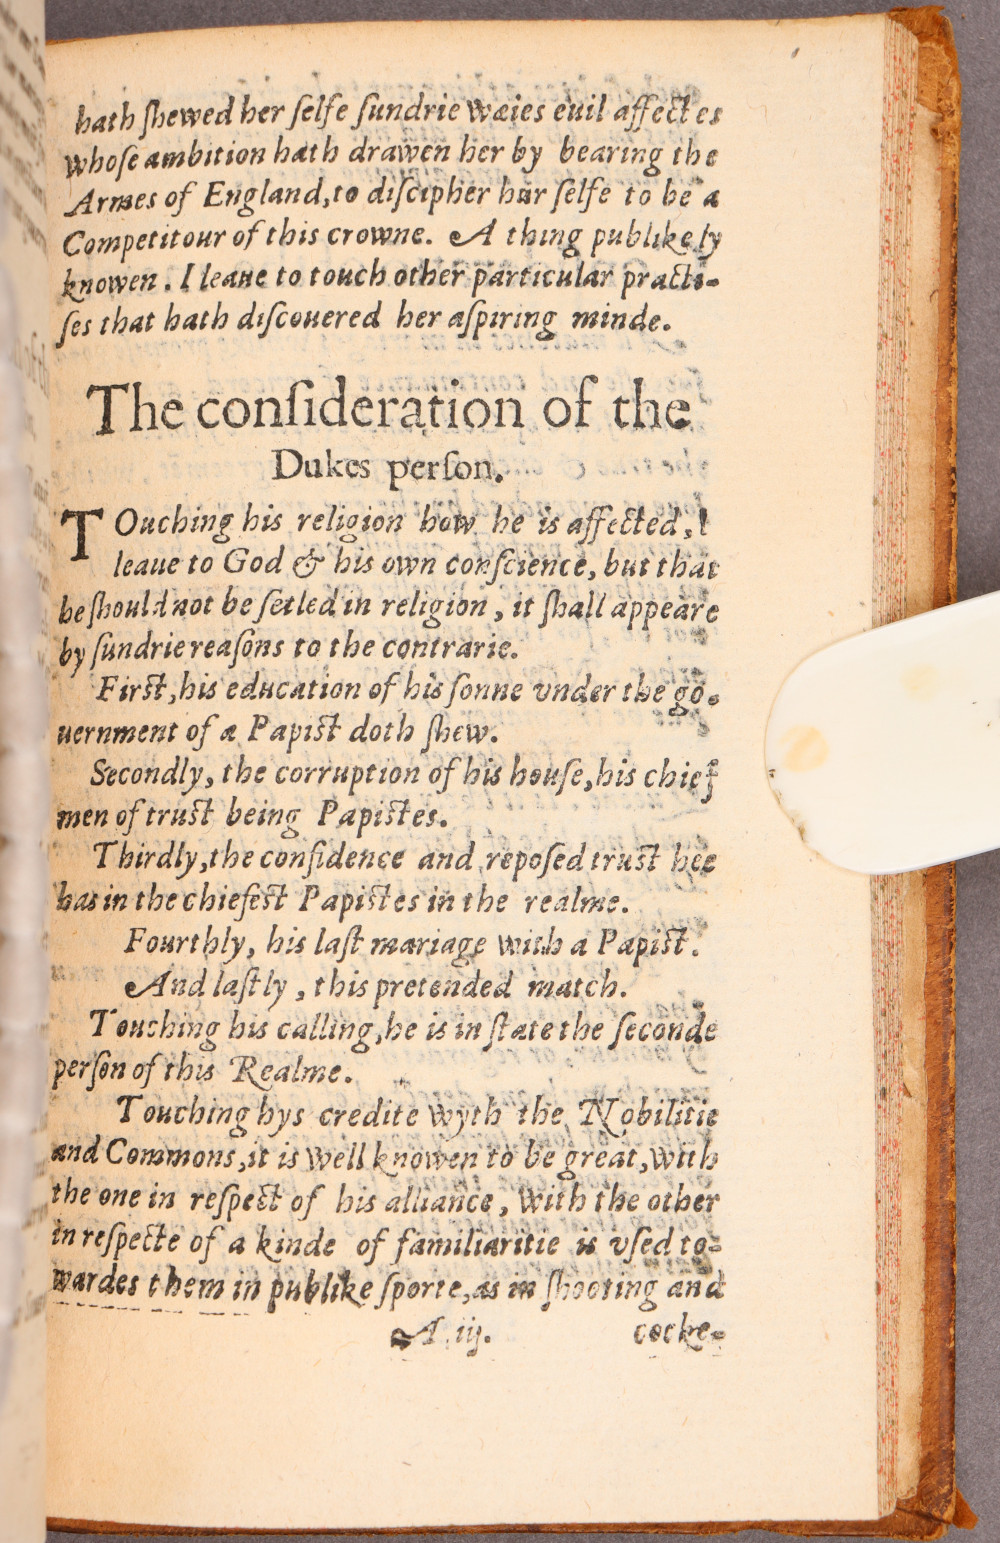 hath ſhewed her ſelfe ſundrie waies euil affectes
whoſe ambition hath drawen her by bearing the
Armes of England,to diſcipher hur ſelfe to be a
Competitour of this crowne. A thing publikely
knowen. I leaue to touch other particular practi-
ſes that hath diſcouered her aſpiring minde.
The conſideration of the
Dukes perſon.
TOuching his religion how he is affected, I
leaue to God & his own conſcience, but that
he ſhould not be ſetled in religion, it ſhall appeare
by ſundrie reaſons to the contrarie.
Firſt,his education of his ſonne vnder the go-
uernment of a Papiſt doth ſhew.
Secondly, the corruption of his houſe,his chief
men of truſt being Papiſtes.
Thirdly,the confidence and repoſed truſt hee
has in the chiefeſt Papiſtes in the realme.
Fourthly, his laſt mariage with a Papiſt.
And laſtly, this pretended match.
Touching his calling,he is in ſtate the ſeconde
perſon of this Realme.
Touching hys credite wyth the Nobilitie
and Commons,it is well knowen to be great,with
the one in reſpect of his alliance, with the other
in reſpecte of a kinde of familiaritie is vſed to-
wardes them in publike ſporte,as in ſhooting and
A.iij. cocke-